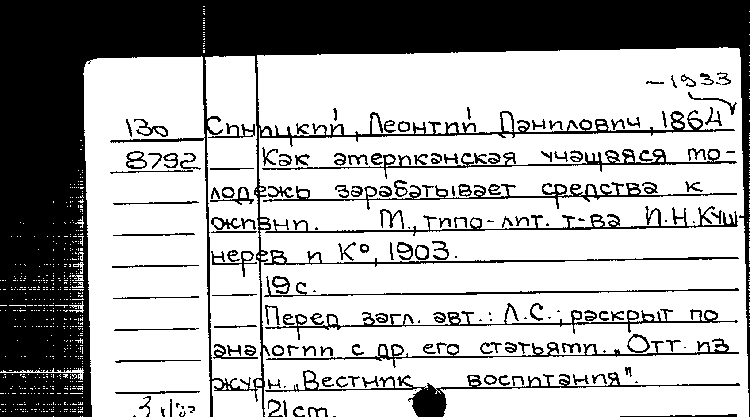 -1933
130 Синицкий, Леонтий Данилович, 1864
8792 Как американская учащаяся мо-
лодежь зарабатывает средства к
жизни. М., типо-лит. т-ва И.Н.Куш-
нерев и К°, 1903.
19 с.
Перед загл. авт.: Л.С.; раскрыт по
аналогии с др. его статьями. "Отт. из
журн. "Вестник воспитания".
21 cm.